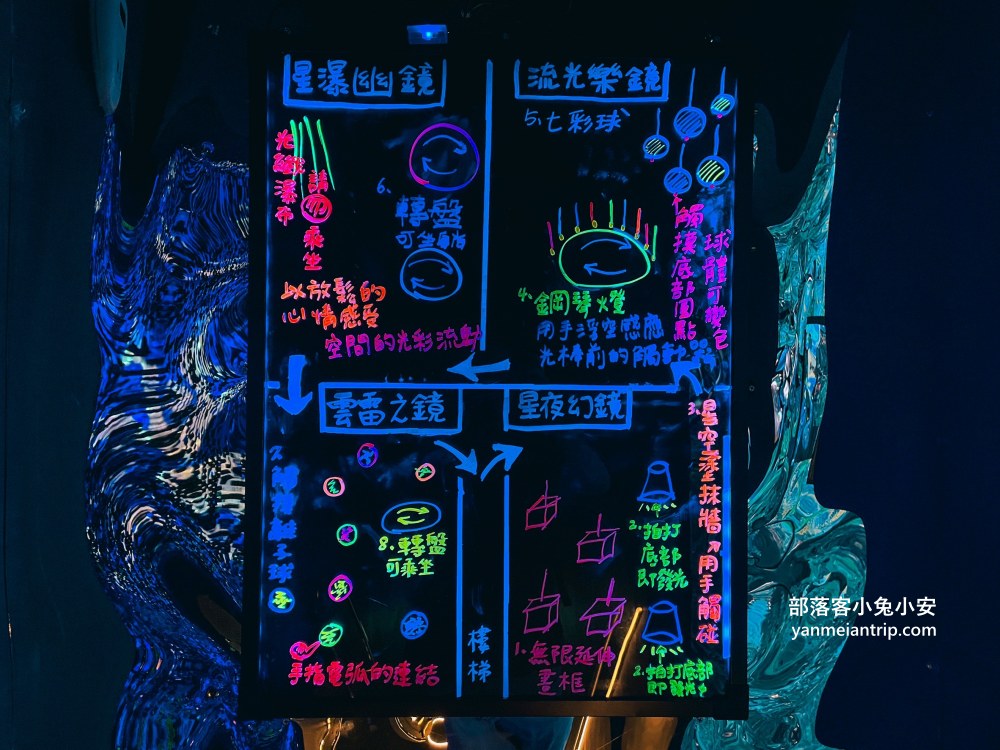 星瀑幽鏡
光纖瀑布
請勿乘坐
以放鬆的
心情感受
空間的光彩流動
6.
轉盤
可坐躺
流光樂鏡
5.七彩球
觸摸底部圓點
球體可變色
4.鋼琴燈
用手浮空感應
光棒前的隔
雲雷之鏡
7.
球
8.轉盤
可乘坐
手指電弧的連結
樓梯
星夜幻鏡
3.星空塗抹牆↗用手觸碰
2.拍打
底部
即發光
1.無限延伸
畫框
2.拍打底部
即發光
部落客小兔小安
yanmeiantrip.com